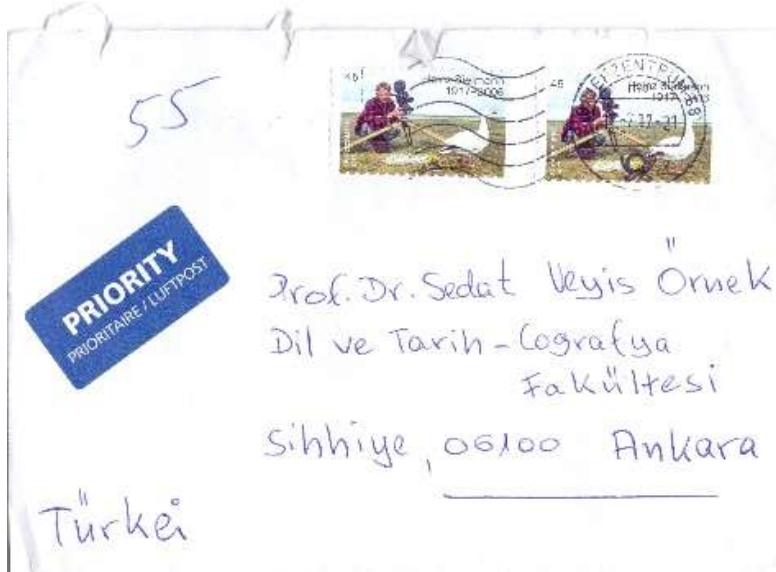 55
45
Heinz Sielmann
1917-2006
45
Heinz Sielmann
BRIEFZENTRUM 88
PRIORITY
PRIORITAIRE / LUFTPOST
Prof. Dr. Sedat Veyis Örnek
Dil ve Tarih-Cografya
Fakültesi
Sihhiye, 06100 Ankara
Türkei